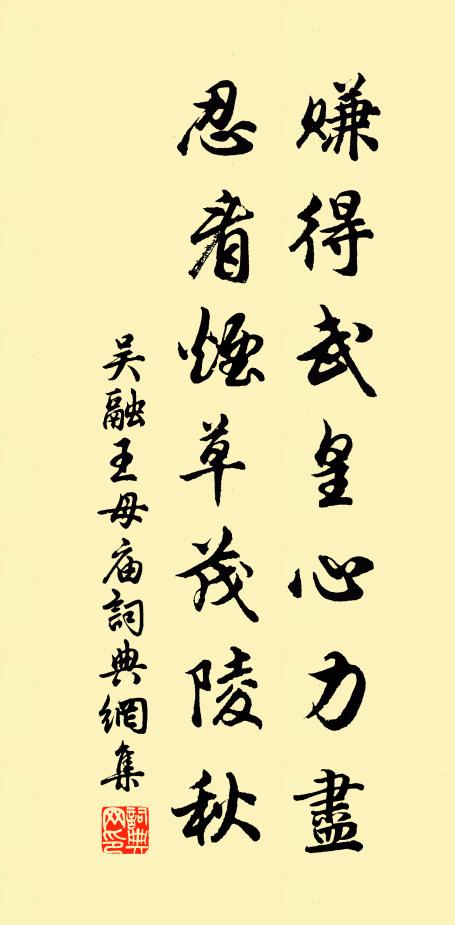 賺得武皇心力盡
忍看煙草茂陵秋
吴融王母庙詞典網集
詞典网印